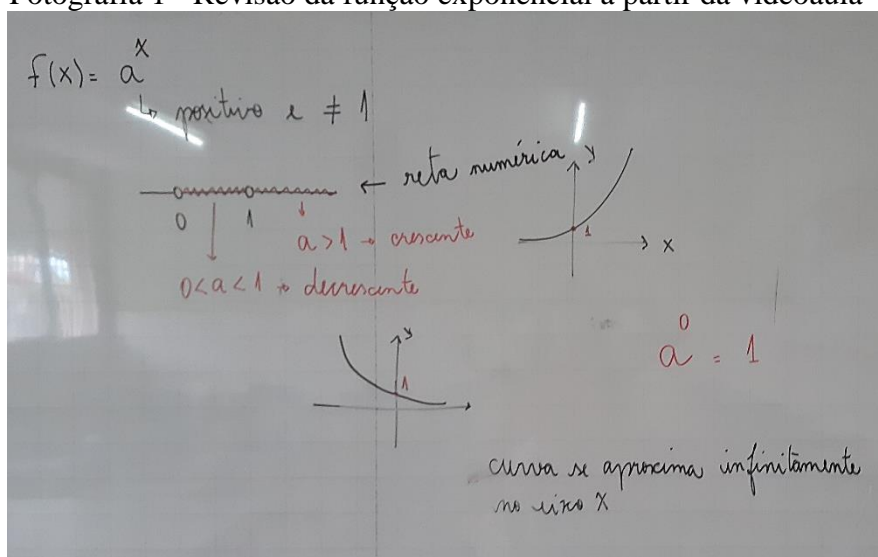 Fotografia 1 - Revisão da função exponencial a partir da videoaula
f(x) = a^x
↳ positivo e ≠ 1
← reta numérica
0 1
a > 1 → crescente
0 < a < 1 → decrescente
y
1
x
a^0 = 1
y
1
curva se aproxima infinitamente
no eixo X